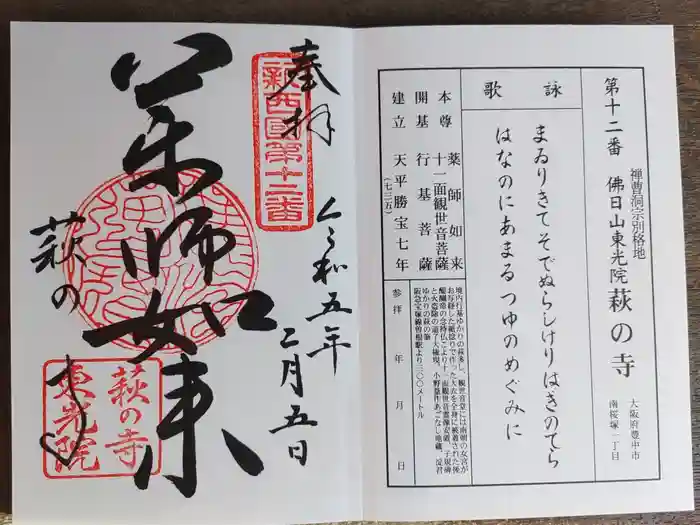 第十二番
禅曹洞宗別格地
佛日山東光院 萩の寺
大阪府豊中市
南桜塚一丁目
詠歌
まゐりきてそでぬらしけりはきのてら
はなのにあまるつゆのめぐみに
本尊 薬師如来
十一面観世音菩薩
開基 行基菩薩
建立 天平勝宝七年
(七三五)
阪急宝塚線曽根駅より三〇〇メートル
参拝 年 月 日
奉拝
新西國第十二番
令和五年
二月五日
薬師如来
萩の寺
萩の寺
東光院